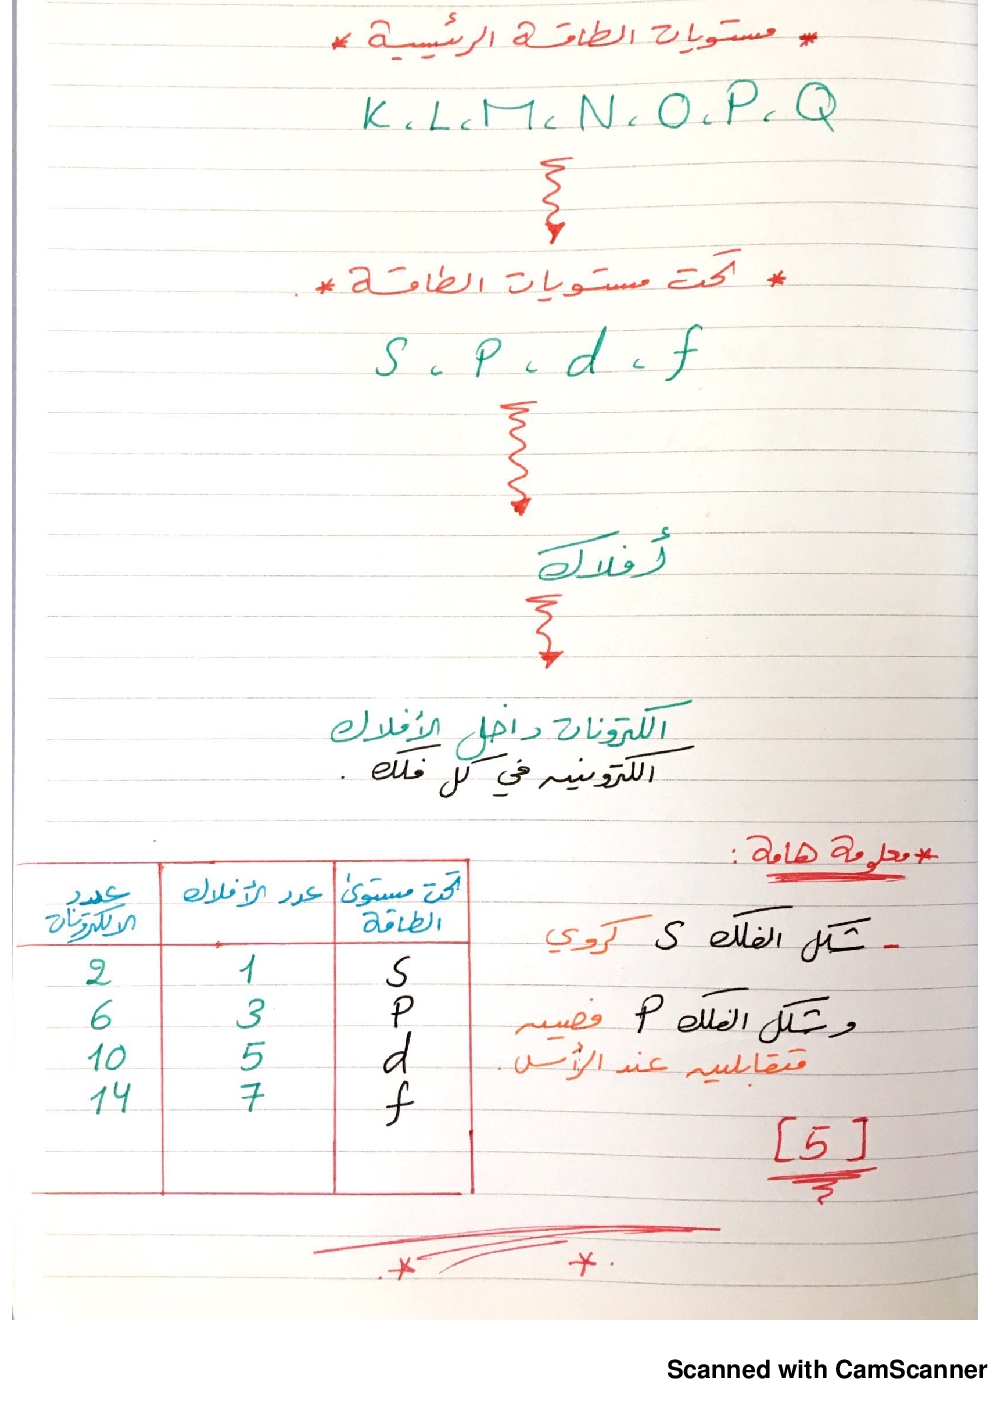 * مستويات الطاقة الرئيسية *
K ، L ، M ، N ، O ، P ، Q
* تحت مستويات الطاقة *
S ، P ، d ، f
أفلاك
الكترونات داخل الأفلاك
الكترونين في كل فلك .
* معلومة هامة :
- شكل الفلك S كروي
وشكل الفلك P فصين
متقابلين عند الرأس .
[5]
تحت مستوى الطاقة | عدد الأفلاك | عدد الالكترونات
S | 1 | 2
P | 3 | 6
d | 5 | 10
f | 7 | 14
Scanned with CamScanner